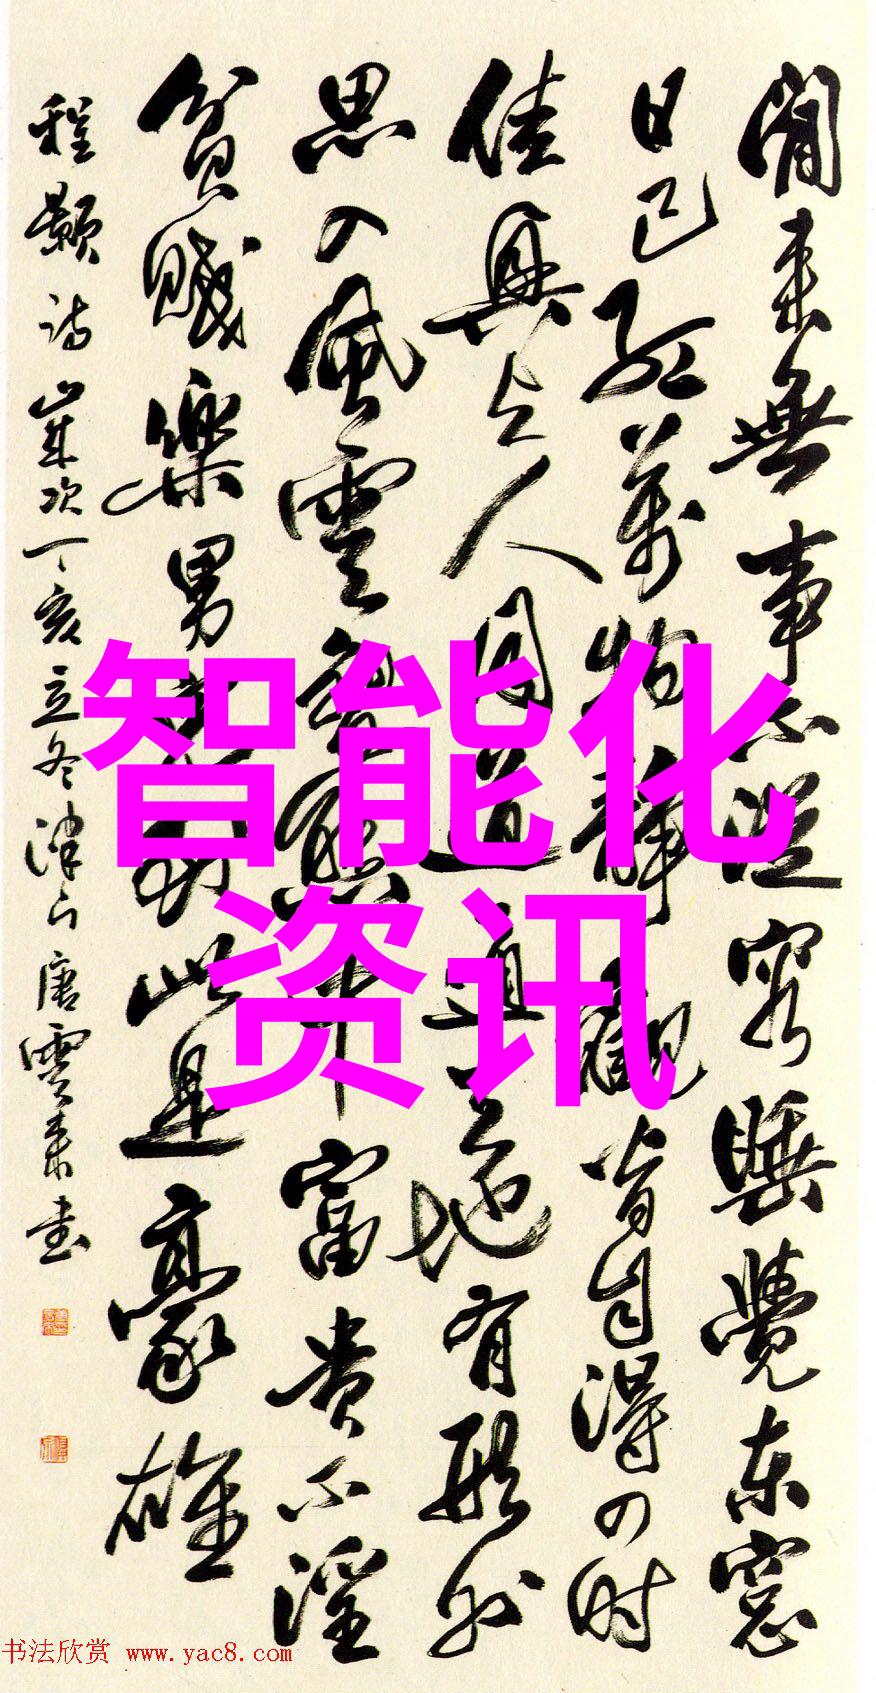 閒来無事不從容睡覺东窓
日已红萬物静觀皆自得四时
佳興与人同道通天地有形外
思入風雲變態中富贵不淫
貧賤樂男兒到此是豪雄
程颢诗 岁次丁亥立冬津门唐雲来书
智能化
资讯
书法欣赏 www.yac8.com